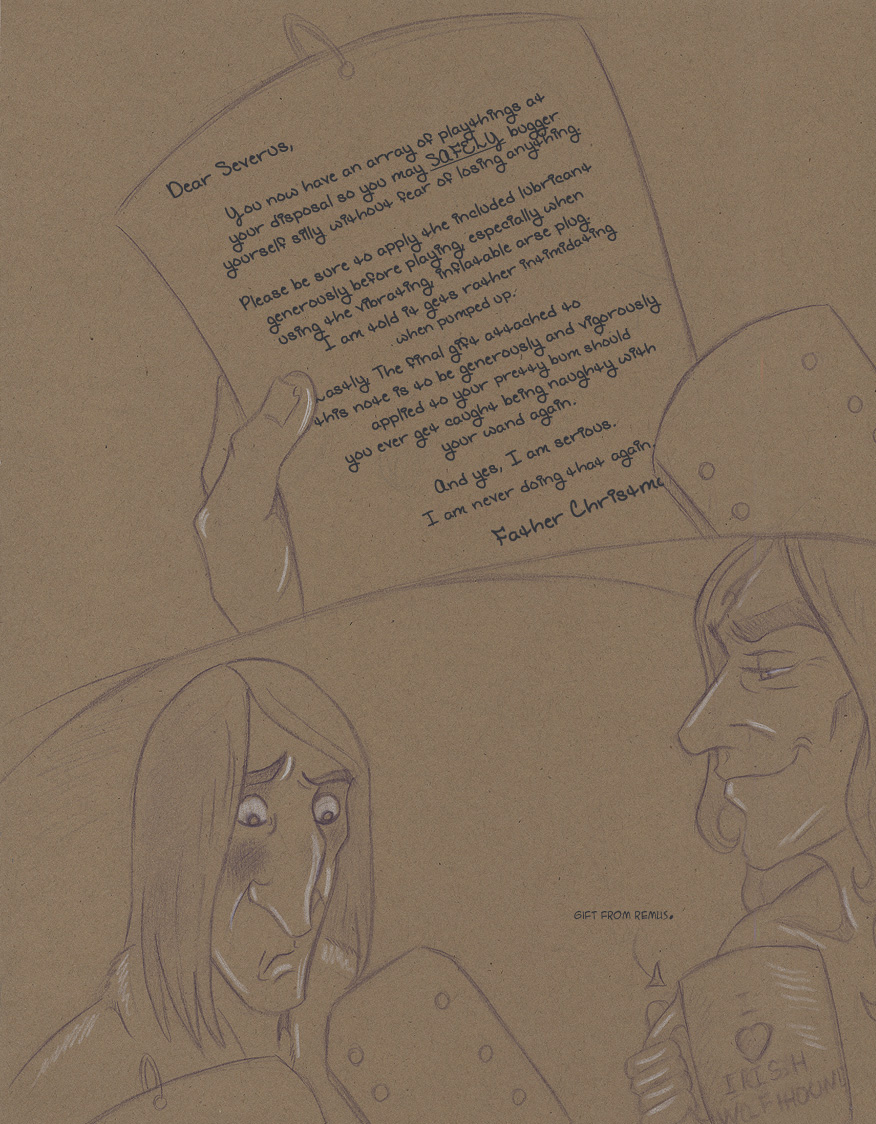 Dear Severus,
You now have an array of playthings at
your disposal so you may SAFELY bugger
yourself silly without fear of losing anything.
Please be sure to apply the included lubricant
generously before playing, especially when
using the vibrating, inflatable arse plug.
I am told it gets rather intimidating
when pumped up.
Lastly, The final gift attached to
this note is to be generously and vigorously
applied to your pretty bum should
you ever get caught being naughty with
your wand again.
And yes, I am serious.
I am never doing that again.
Father Christma
GIFT FROM REMUS.
I
IRISH
WOLFHOUND